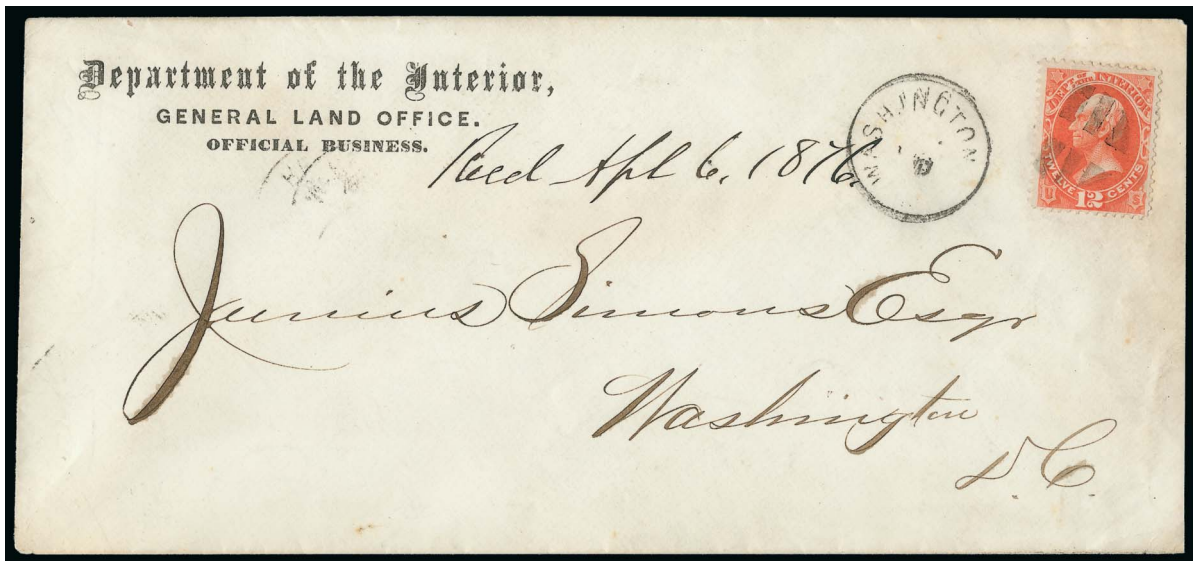 Department of the Interior,
GENERAL LAND OFFICE.
OFFICIAL BUSINESS.
Recd Apl 6, 1876
WASHINGTON
DEPT. OF THE INTERIOR
TWELVE 12 CENTS
Junius Simons Esqr
Washington
D.C.